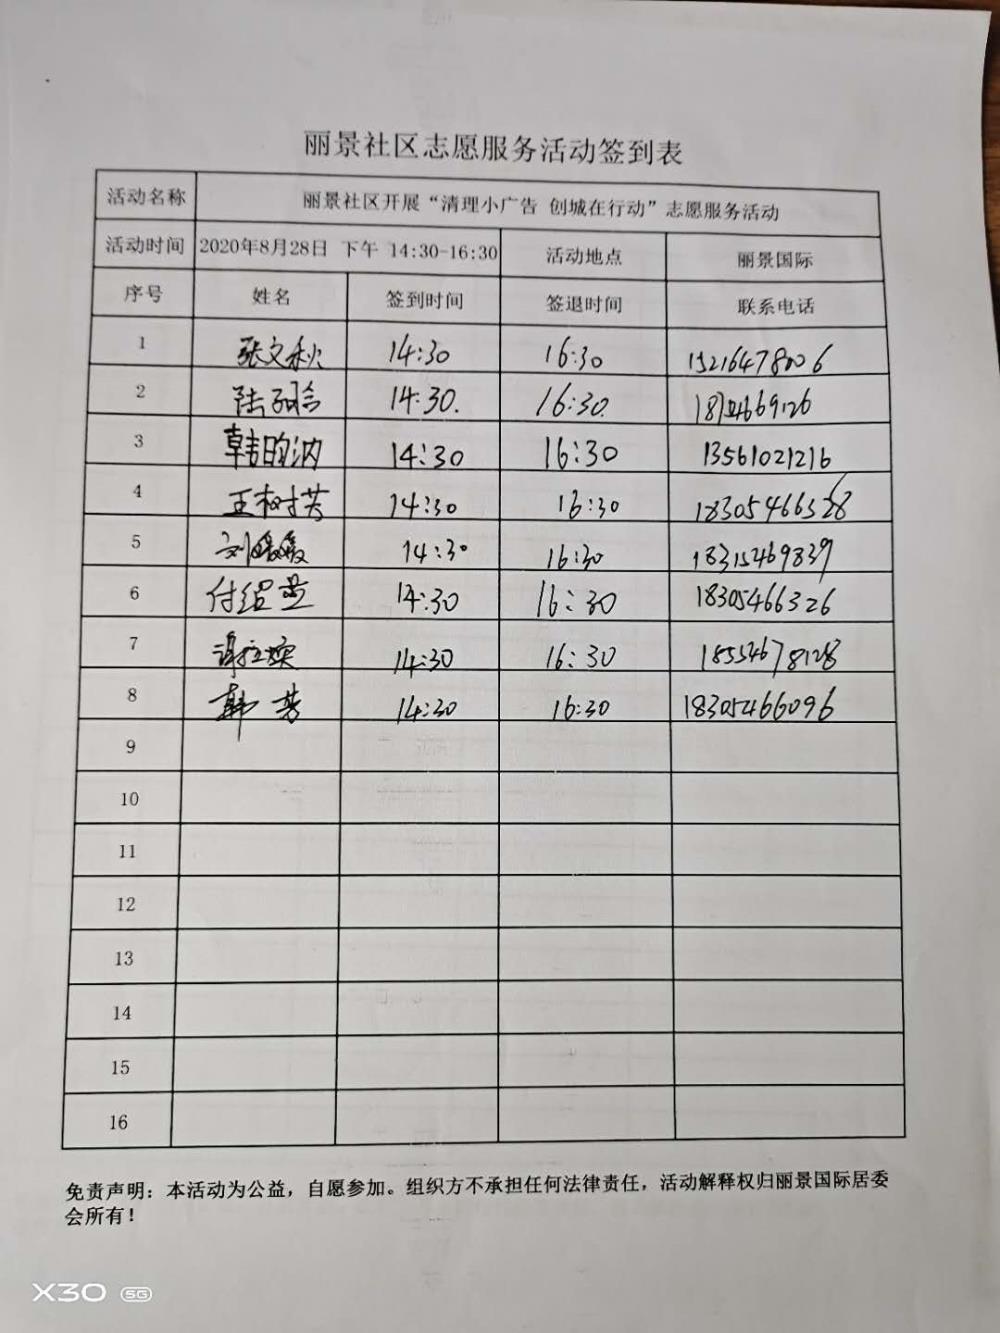 丽景社区志愿服务活动签到表
活动名称 丽景社区开展“清理小广告 创城在行动”志愿服务活动
活动时间 2020年8月28日 下午 14:30-16:30 活动地点 丽景国际
序号 姓名 签到时间 签退时间 联系电话
1 张文秋 14:30 16:30 15216478006
2 14:30. 16:30.
3 14:30 16:30 13561021216
4 王树芳 14:30 16:30 18305466328
5 刘媛媛 14:30 16:30 18315469839
6 14:30 16:30 18305466326
7 14:30 16:30 18554678128
8 韩芳 14:30 16:30 18305466096
9
10
11
12
13
14
15
16
免责声明：本活动为公益，自愿参加。组织方不承担任何法律责任，活动解释权归丽景国际居委
会所有！
X30 5G